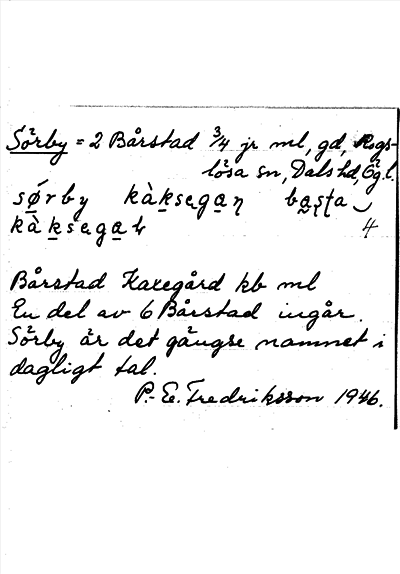 Sörby = 2 Bårstad 3/4 jr ml, gd, Rogs-
lösa sn, Dals hd, Ög.l.
sǿrby kàksegaṇ baṣṭa
kàksega 4
Bårstad Kaxegård kb ml
En del av 6 Bårstad ingår.
Sörby är det gängse namnet i
dagligt tal.
P.-E. Fredriksson 1946.